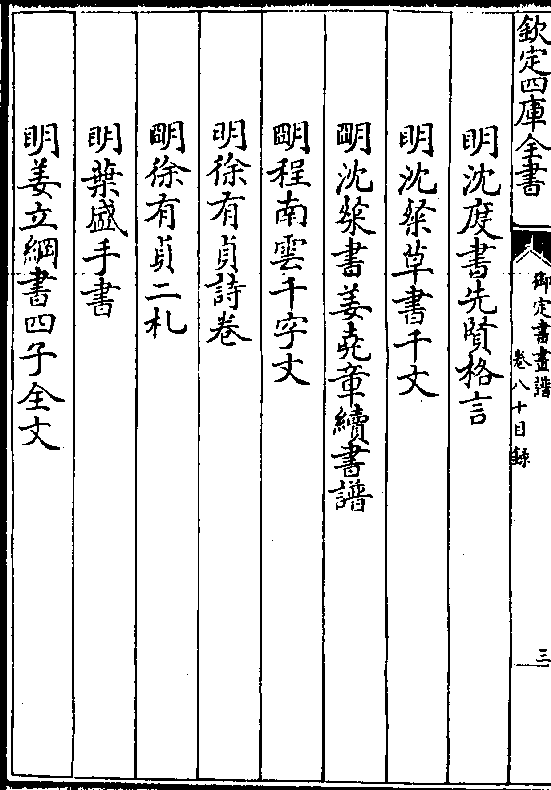 欽定四庫全書
御定書畫譜
卷八十目録
三
明沈度書先賢格言
明沈粲草書千文
明沈粲書姜堯章續書譜
明程南雲千字文
明徐有貞詩卷
明徐有貞二札
明葉盛手書
明姜立綱書四子全文